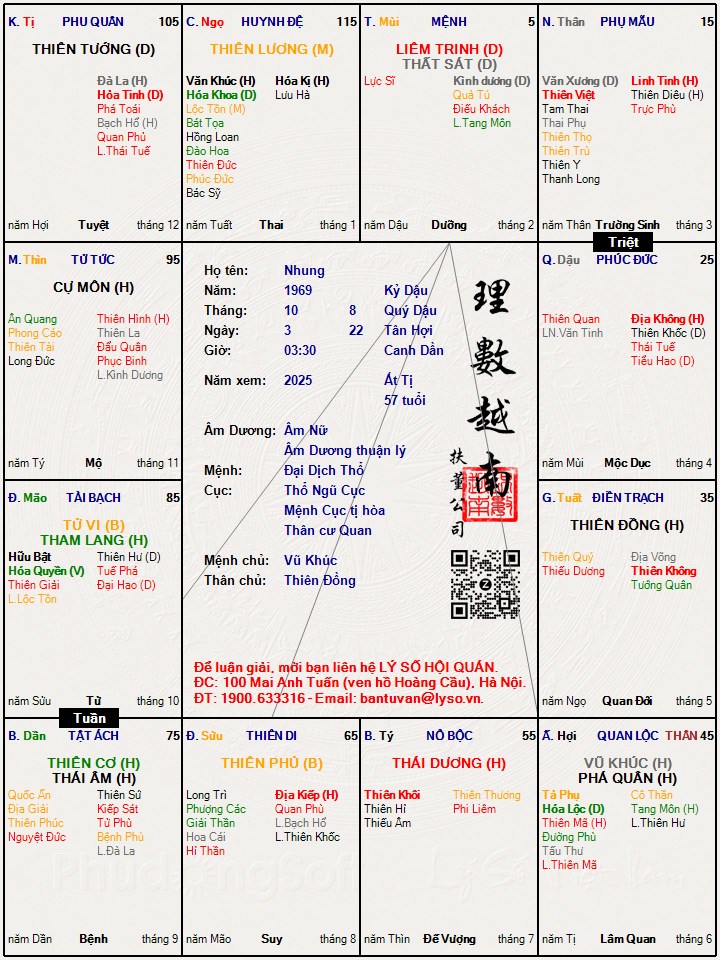 K. Tị PHU QUÂN 105
THIÊN TƯỚNG (D)
Đà La (H)
Hỏa Tinh (D)
Phá Toái
Bạch Hổ (H)
Quan Phủ
L.Thái Tuế
năm Hợi Tuyệt tháng 12
C. Ngọ HUYNH ĐỆ 115
THIÊN LƯƠNG (M)
Văn Khúc (H) Hóa Kị (H)
Hóa Khoa (D) Lưu Hà
Lộc Tồn (M)
Bát Tọa
Hồng Loan
Đào Hoa
Thiên Đức
Phúc Đức
Bác Sỹ
năm Tuất Thai tháng 1
T. Mùi MỆNH 5
LIÊM TRINH (D)
THẤT SÁT (D)
Lực Sĩ Kình dương (D)
Quả Tú
Điếu Khách
L.Tang Môn
năm Dậu Dưỡng tháng 2
N. Thân PHỤ MẪU 15
Văn Xương (D) Linh Tinh (H)
Thiên Việt Thiên Diêu (H)
Tam Thai Trực Phù
Thai Phụ
Thiên Thọ
Thiên Trù
Thiên Y
Thanh Long
năm Thân Trường Sinh tháng 3
Triệt
M. Thìn TỬ TỨC 95
CỰ MÔN (H)
Ân Quang Thiên Hình (H)
Phong Cáo Thiên La
Thiên Tài Đẩu Quân
Long Đức Phục Binh
L.Kình Dương
năm Tý Mộ tháng 11
Họ tên: Nhung
Năm: 1969 Kỷ Dậu
Tháng: 10 8 Quý Dậu
Ngày: 3 22 Tân Hợi
Giờ: 03:30 Canh Dần
Năm xem: 2025 Ất Tị
57 tuổi
Âm Dương: Âm Nữ
Âm Dương thuận lý
Mệnh: Đại Dịch Thổ
Cục: Thổ Ngũ Cục
Mệnh Cục tị hòa
Thân cư Quan
Mệnh chủ: Vũ Khúc
Thân chủ: Thiên Đồng
理數越南
扶董公司
Để luận giải, mời bạn liên hệ LÝ SỐ HỘI QUÁN.
ĐC: 100 Mai Anh Tuấn (ven hồ Hoàng Cầu), Hà Nội.
ĐT: 1900.633316 - Email: bantuvan@lyso.vn.
Q. Dậu PHÚC ĐỨC 25
Thiên Quan Địa Không (H)
LN.Văn Tinh Thiên Khốc (D)
Thái Tuế
Tiểu Hao (D)
năm Mùi Mộc Dục tháng 4
Đ. Mão TÀI BẠCH 85
TỬ VI (B)
THAM LANG (H)
Hữu Bật Thiên Hư (D)
Hóa Quyền (V) Tuế Phá
Thiên Giải Đại Hao (D)
L.Lộc Tồn
năm Sửu Tử tháng 10
G. Tuất ĐIỀN TRẠCH 35
THIÊN ĐỒNG (H)
Thiên Quý Địa Võng
Thiếu Dương Thiên Không
Tướng Quân
năm Ngọ Quan Đới tháng 5
Tuần
B. Dần TẬT ÁCH 75
THIÊN CƠ (H)
THÁI ÂM (H)
Quốc Ấn Thiên Sứ
Địa Giải Kiếp Sát
Thiên Phúc Tử Phù
Nguyệt Đức Bệnh Phù
L.Đà La
năm Dần Bệnh tháng 9
Đ. Sửu THIÊN DI 65
THIÊN PHỦ (B)
Long Trì Địa Kiếp (H)
Phượng Các Quan Phù
Giải Thần L.Bạch Hổ
Hoa Cái L.Thiên Khốc
Hỉ Thần
năm Mão Suy tháng 8
B. Tý NÔ BỘC 55
THÁI DƯƠNG (H)
Thiên Khôi Thiên Thương
Thiên Hỉ Phi Liêm
Thiếu Âm
năm Thìn Đế Vượng tháng 7
Ấ. Hợi QUAN LỘC THÂN 45
VŨ KHÚC (H)
PHÁ QUÂN (H)
Tả Phụ Cô Thần
Hóa Lộc (D) Tang Môn (H)
Thiên Mã (H) L.Thiên Hư
Đường Phù
Tấu Thư
L.Thiên Mã
năm Tị Lâm Quan tháng 6